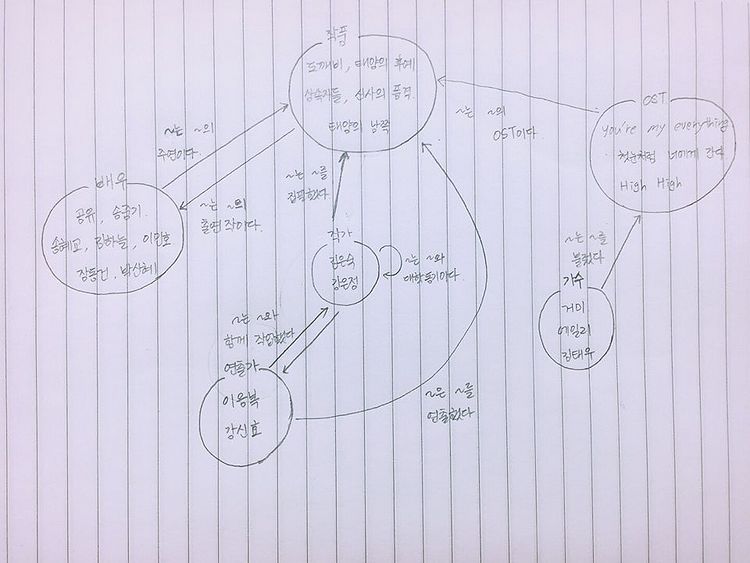 작품
도깨비, 태양의 후예
상속자들, 신사의 품격
태양의 남쪽
~는 ~의
주연이다.
~는 ~의
OST이다.
OST
you're my everything
첫눈처럼 너에게 간다
High High
배우
공유, 송중기
송혜교, 김하늘, 이민호
장동건, 박신혜
~는 ~의
출연작이다.
~는 ~를
집필했다
작가
김은숙
강은정
~는 ~와
대학동기이다.
~는 ~를
불렀다
가수
거미
에일리
김태우
~는 ~와
함께 작업했다
연출가
이응복
강신효
~은 ~를
연출했다